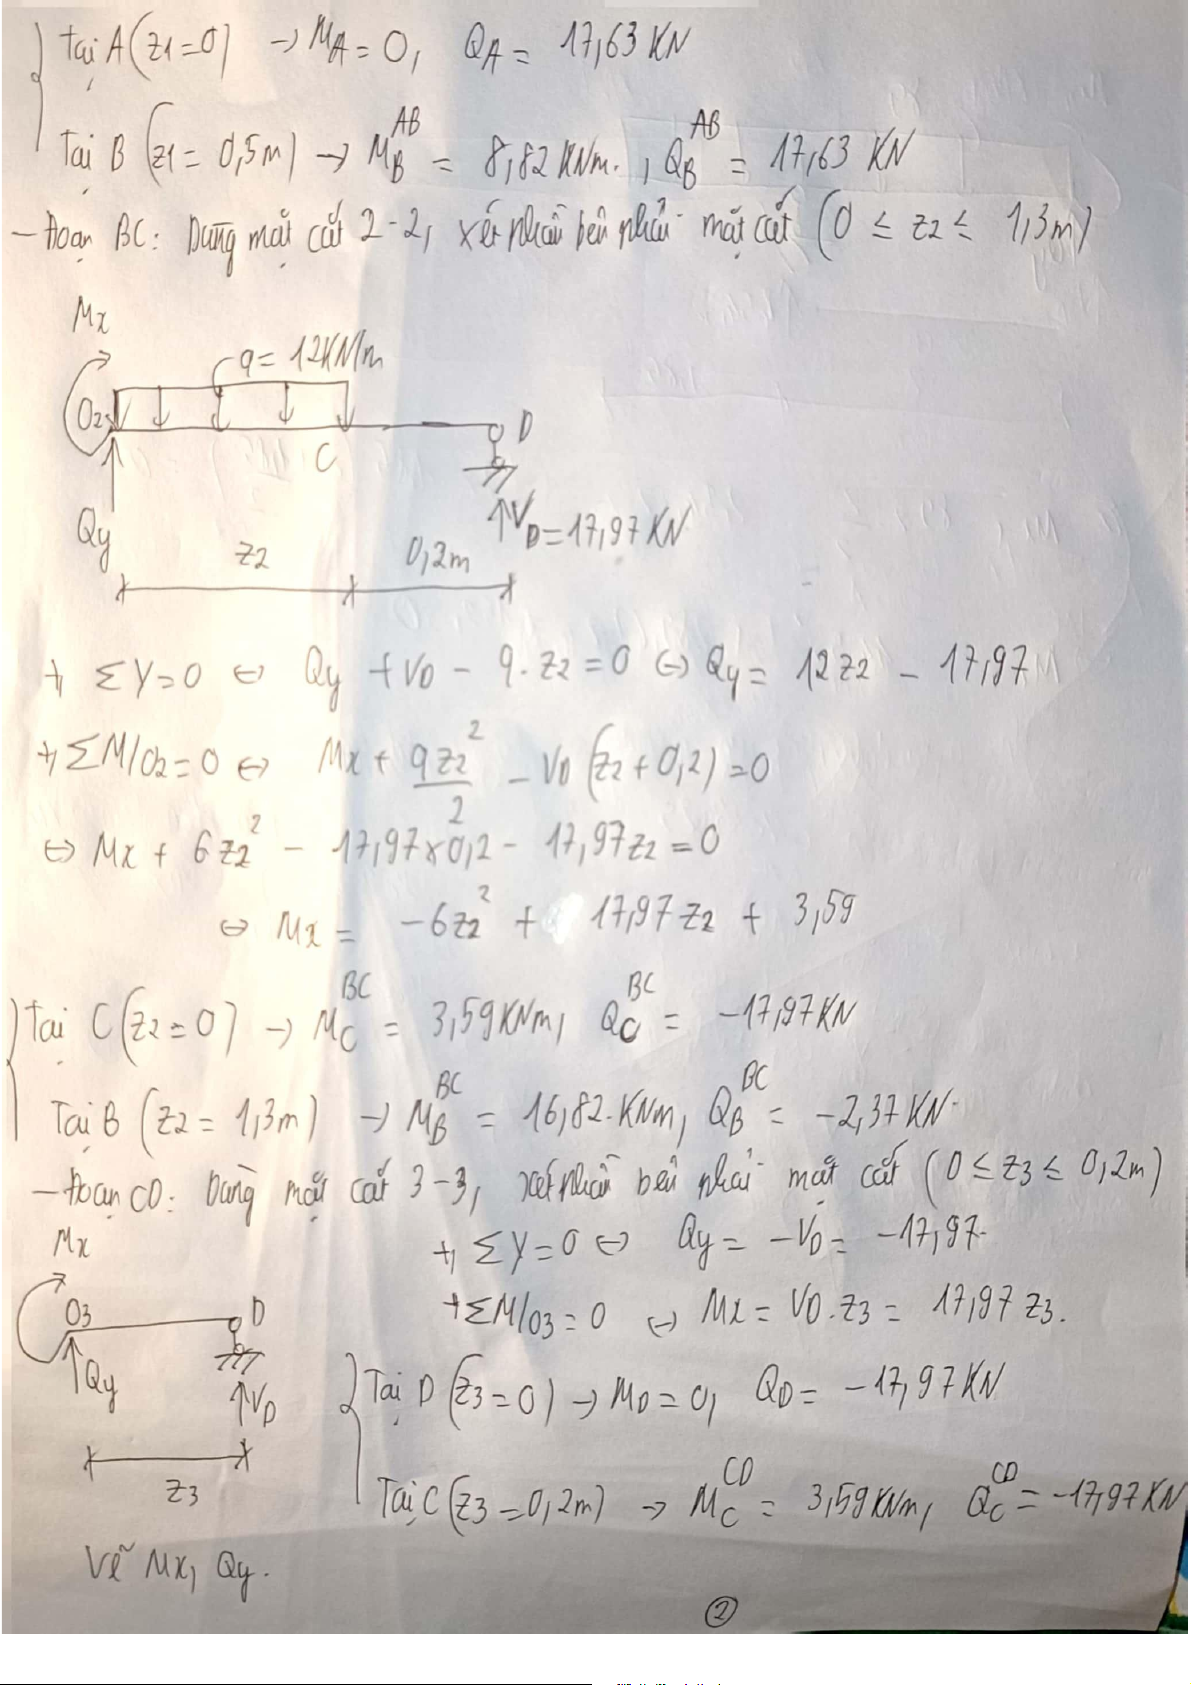 Tại A (z1=0) → MA = 0, QA = 17,63 KN
Tại B (z1 = 0,5m) → MB^AB = 8,82 KNm. , QB^AB = 17,63 KN
- Đoạn BC: Dùng mặt cắt 2-2, xét phần bên phải mặt cắt (0 ≤ z2 ≤ 1,3m)
Mx
q = 12KN/m
O2
D
C
Qy
VD = 17,97 KN
z2
0,2m
+, ΣY=0 ⇔ Qy + VD - q.z2 = 0 ⇔ Qy = 12z2 - 17,97
+, ΣM/O2 = 0 ⇔ Mx + qz2²/2 - VD (z2 + 0,2) = 0
⇔ Mx + 6z2² - 17,97×0,2 - 17,97z2 = 0
⇔ Mx = -6z2² + 17,97z2 + 3,59
Tại C (z2 = 0) → MC^BC = 3,59KNm, QC^BC = -17,97KN
Tại B (z2 = 1,3m) → MB^BC = 16,82.KNm, QB^BC = -2,37KN.
- Đoạn CD: Dùng mặt cắt 3-3, xét phần bên phải mặt cắt (0 ≤ z3 ≤ 0,2m)
Mx
+, ΣY=0 ⇔ Qy = -VD = -17,97.
O3
D
+ ΣM/O3 = 0 ⇔ Mx = VD.z3 = 17,97z3.
Qy
VD
Tại D (z3=0) → MD = 0, QD = -17,97KN
z3
Tại C (z3 = 0,2m) → MC^CD = 3,59KNm, QC^CD = -17,97KN
Vẽ Mx, Qy.
2